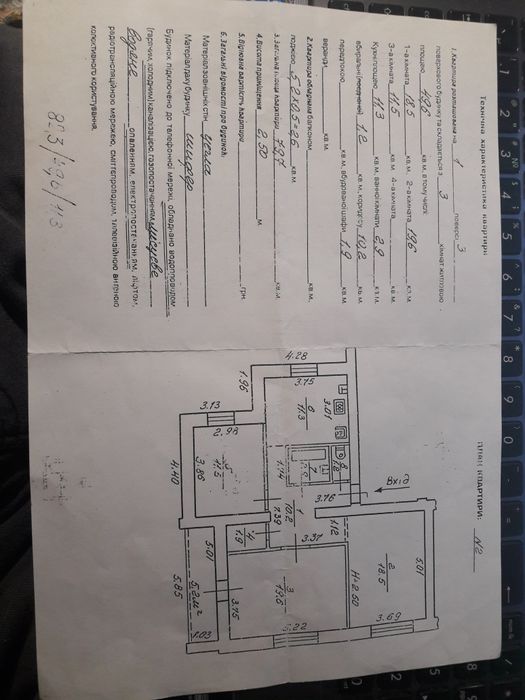 Технічна характеристика квартири
1. Квартира розташована на 1 поверсі 3
поверхового будинку та складається з 3 кімнат житловою
площею 49,6 кв.м, в тому числі:
1-а кімната 18.5 кв.м, 2-а кімната 19.6 кв.м.
3-я кімната 11.5 кв.м, 4-а кімната кв.м.
Кухні площею 11.3 кв.м, ванної кімнати 2,9 кв.м.
вбиральні (несуміщеної) 1.2 кв.м, коридору 10,2 кв.м.
передпокою кв.м, вбудованої шафи 1.9 кв.м.
веранди кв.м.
2. Квартира обладнана балконом
лоджією 5.2х0,5=2,6 кв.м.
3. Загальна площа квартири кв.м.
4. Висота приміщення 2,50 м
5. Відновна вартість квартири грн.
6. Загальні відомості про будинок:
Матеріал зовнішніх стін
Матеріал даху будинку
Будинок підключено до телефонної мережі, обладнано водопроводом
(гарячим, холодним) каналізацією, газопостачанням, місцеве
опаленням, електропостачанням, ліфтом,
радіотрансляційною мережею, сміттєпроводом, телевізійною антеною
колективного користування.
ПЛАН КВАРТИРИ: №2
Вхід
2
18.5
5.01
3.69
H=2.50
1.12
3
19.6
3.37
3.75
4
1.9
5
11.5
2.98
3.86
3.13
4.40
1.96
4.28
3.75
6
11.3
3.01
7
2.9
8
1.2
1.74
3.76
1
10.2
7.39
5.01
5.85
5,2 м²
1.03